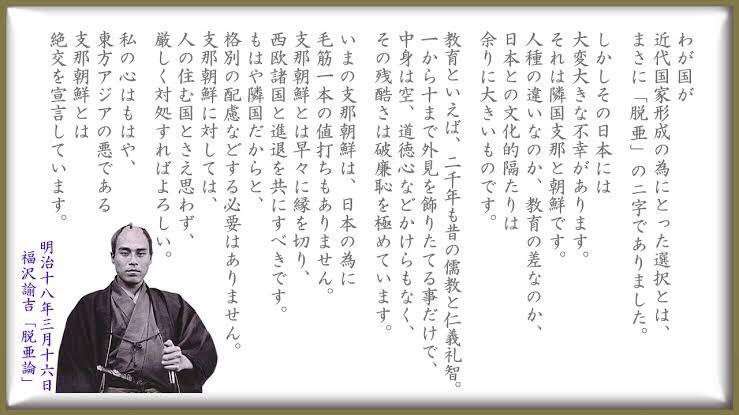 わが国が
近代国家形成の為にとった選択とは、
まさに「脱亜」の二字でありました。
しかしその日本には
大変大きな不幸があります。
それは隣国支那と朝鮮です。
人種の違いなのか、教育の差なのか、
日本との文化的隔たりは
余りに大きいものです。
教育といえば、二千年も昔の儒教と仁義礼智。
一から十まで外見を飾りたてる事だけで、
中身は空、道徳心などかけらもなく、
その残酷さは破廉恥を極めています。
いまの支那朝鮮は、日本の為に
毛筋一本の値打ちもありません。
支那朝鮮とは早々に縁を切り、
西欧諸国と進退を共にすべきです。
もはや隣国だからと、
格別の配慮などする必要はありません。
支那朝鮮に対しては、
人の住む国とさえ思わず、
厳しく対処すればよろしい。
私の心はもはや、
東方アジアの悪である
支那朝鮮とは
絶交を宣言しています。
明治十八年三月十六日
福沢諭吉「脱亜論」